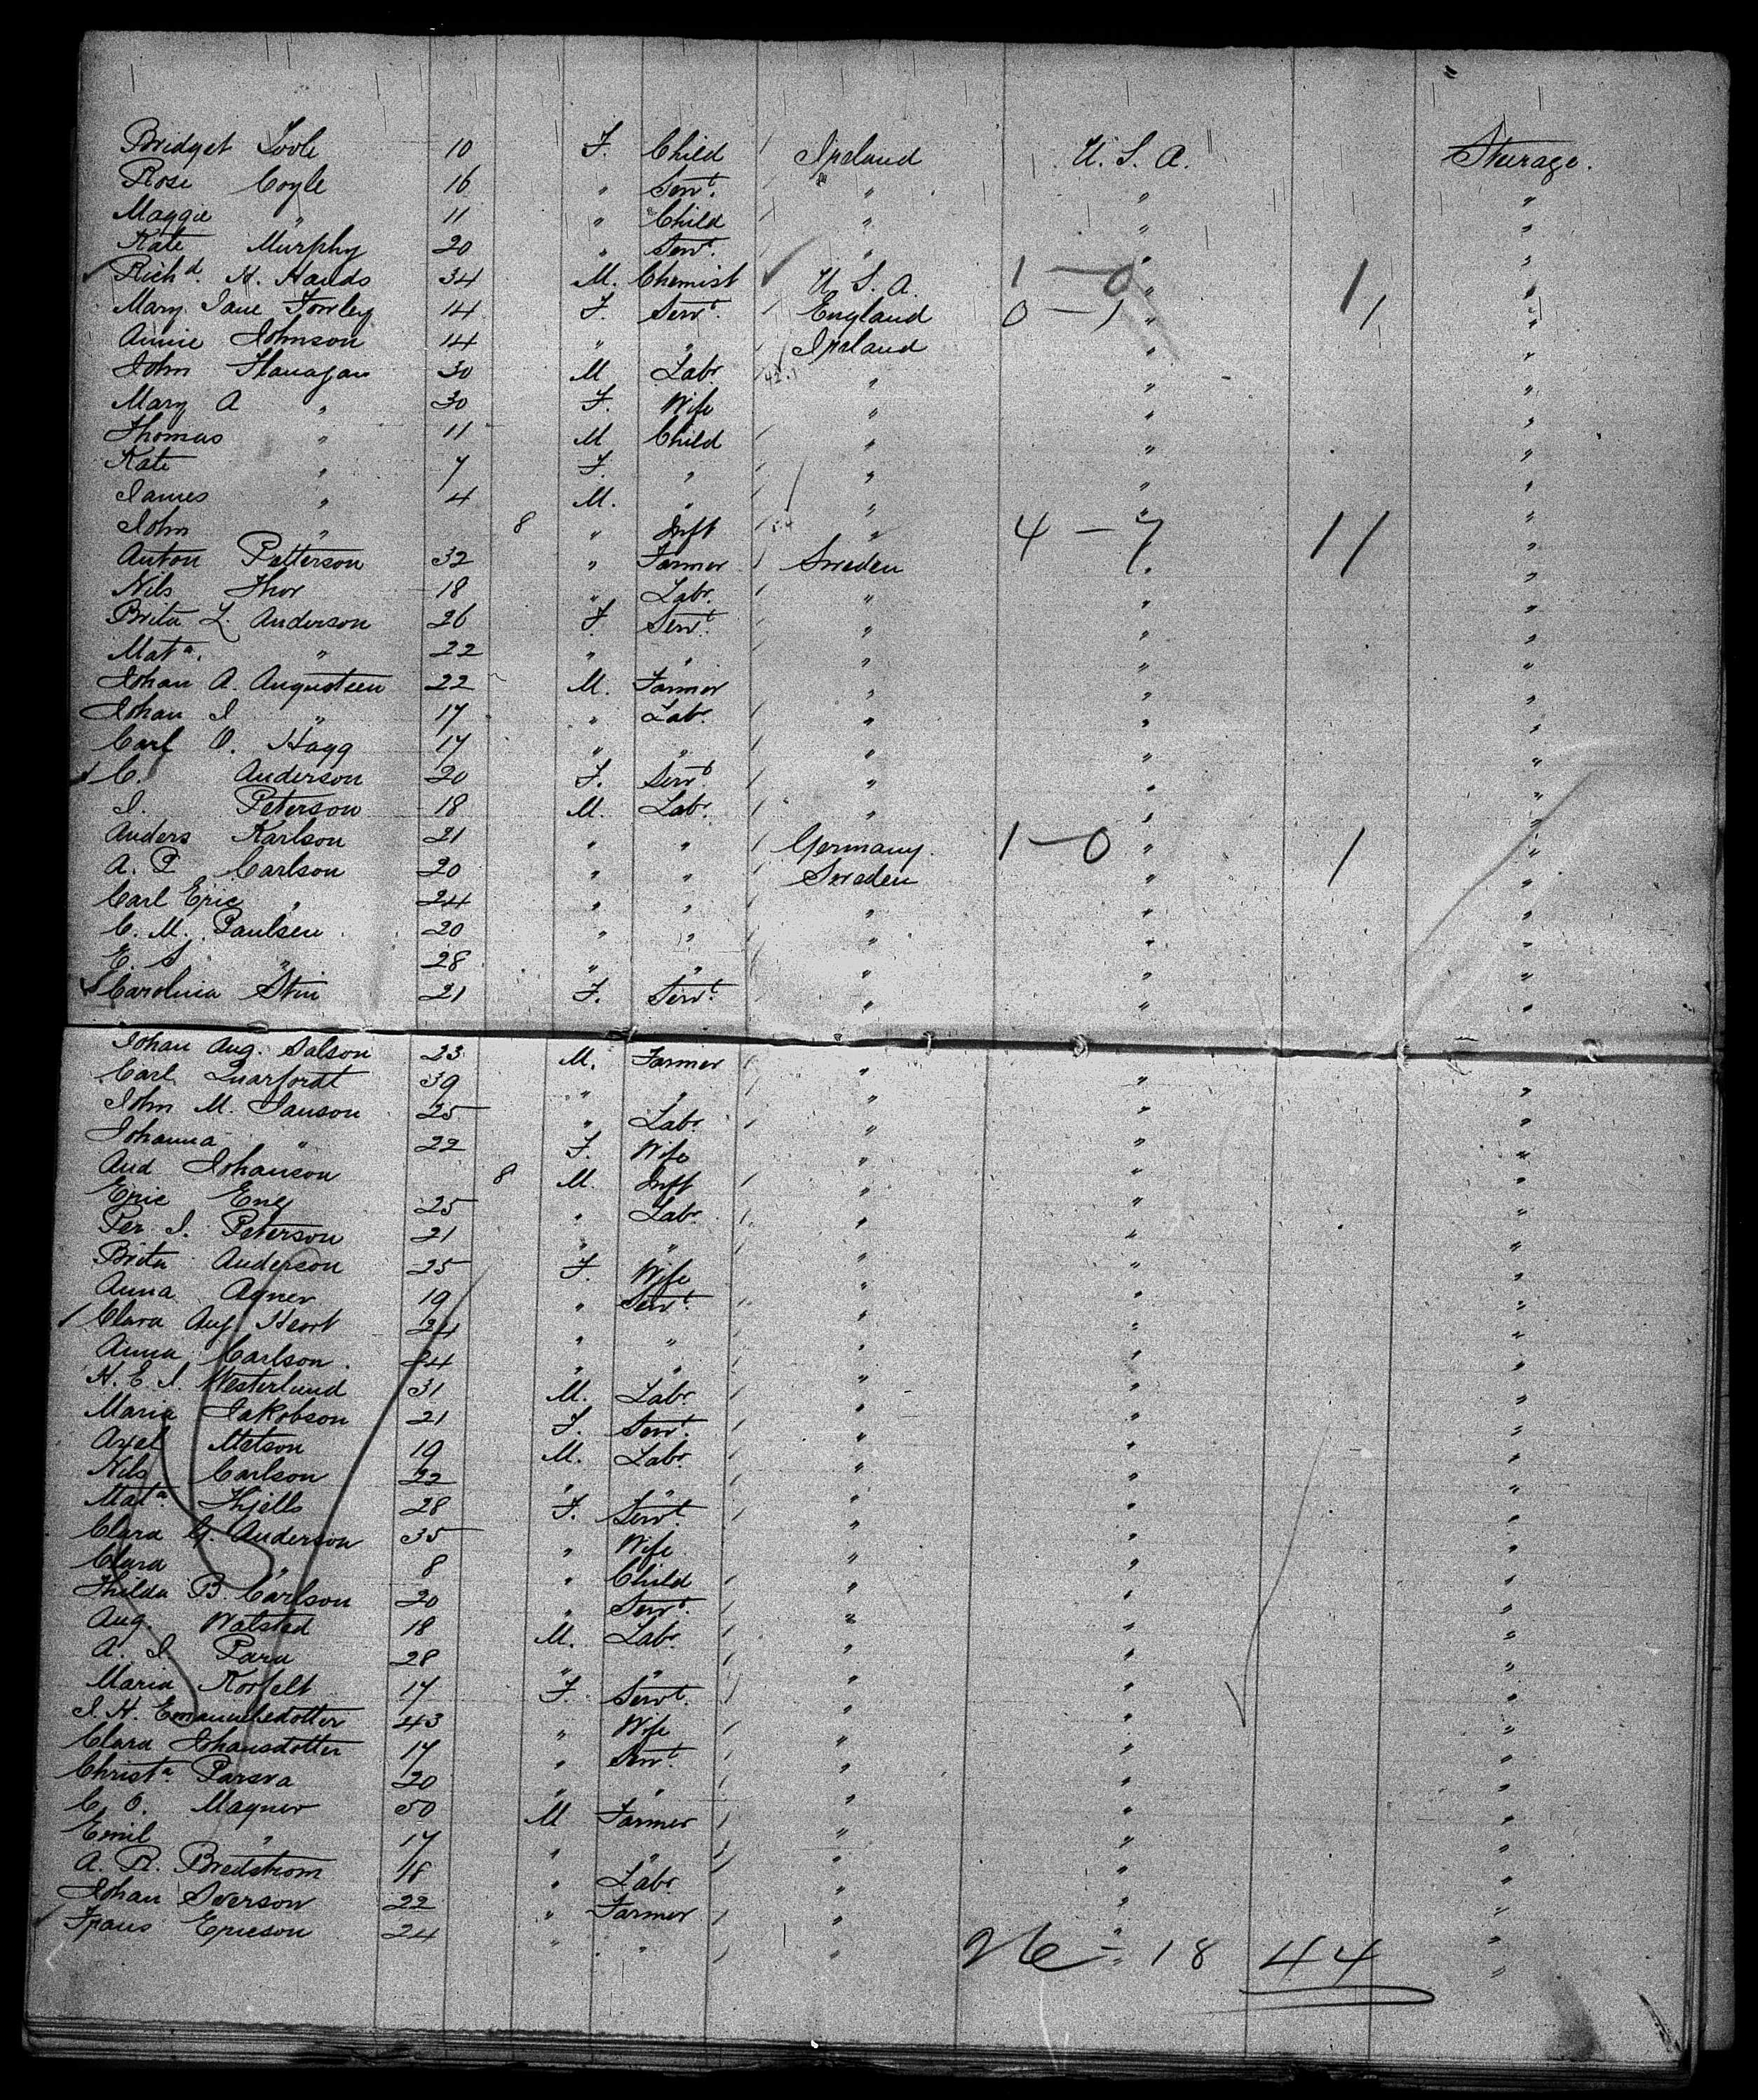 Bridget Toole 10 F. Child Ireland U. S. A. Steerage.
Rose Coyle 16 " Servt. " " "
Maggie " 11 " Child " " "
Kate Murphy 20 " Servt. " " "
Richd. H. Hands 34 M. Chemist U. S. A. 1-0 " 1 "
Mary Jane Fowley 14 F. Servt. England 0-1 " 1 "
Annie Johnson 14 " " Ireland " "
John Flanagan 30 M Labr. " " "
Mary A " 30 F. Wife " " "
Thomas " 11 M Child " " "
Kate " 7 F. " " " "
James " 4 M. " " " "
John " 8 " Inft " 4-7 " 11 "
Anton Patterson 32 " Farmer Sweden " "
Nils Thor 18 " Labr. " " "
Brita L. Anderson 26 F. Servt. " " "
Mata. " 22 " " " " "
Johan A. Augustsen 22 M. Farmer " " "
Johan J " 17 " Labr. " " "
Carl O. Hagg 17 " " " " "
C. Anderson 20 F. Servt " " "
J. Peterson 18 M. Labr. " " "
Anders Karlson 21 " " Germany 1-0 " 1 "
A. P Carlson 20 " " Sweden " "
Carl Eric " 24 " " " " "
C. M. Paulsen 20 " " " " "
E. S " 28 " " " " "
Carolina Stin 21 F. Servt. " " "
Johan Aug. Salson 23 M. Farmer " " "
Carl Quarfordt 39 " " " " "
John M. Janson 25 " Labr. " " "
Johanna " 22 F. Wife " " "
And Johanson 8 M. Inft " " "
Eric Eng 25 " Labr. " " "
Per J. Peterson 21 " " " " "
Brita Anderson 25 F. Wife " " "
Anna Agner 19 " Servt. " " "
Clara Aug Heort 24 " " " " "
Anna Carlson. 24 " " " " "
H. E. J. Westerlund 31 M. Labr. " " "
Maria Jakobson 21 F. Servt. " " "
Axel Matson 19 M. Labr. " " "
Nils Carlson 22 " " " " "
Mata Thjells 28 F. Servt. " " "
Clara G. Anderson 35 " Wife " " "
Clara " 8 " Child " " "
Thilda B. Carlson 20 " Servt. " " "
Aug. Walsted 18 M. Labr. " " "
A. J. Para 28 " " " " "
Maria Korfelt 17 F. Servt. " " "
J. H. Emanuelsdotter 43 " Wife " " "
Clara Johansdotter 17 " Servt. " " "
Christa. Parsva 20 " " " " "
C. O. Magner 50 M Farmer " " "
Emil " 17 " " " " "
A. R. Bredstrom 18 " Labr. " " "
Johan Sverson 22 " Farmer " " "
Frans Ericson 24 " " " " "
26-18 44